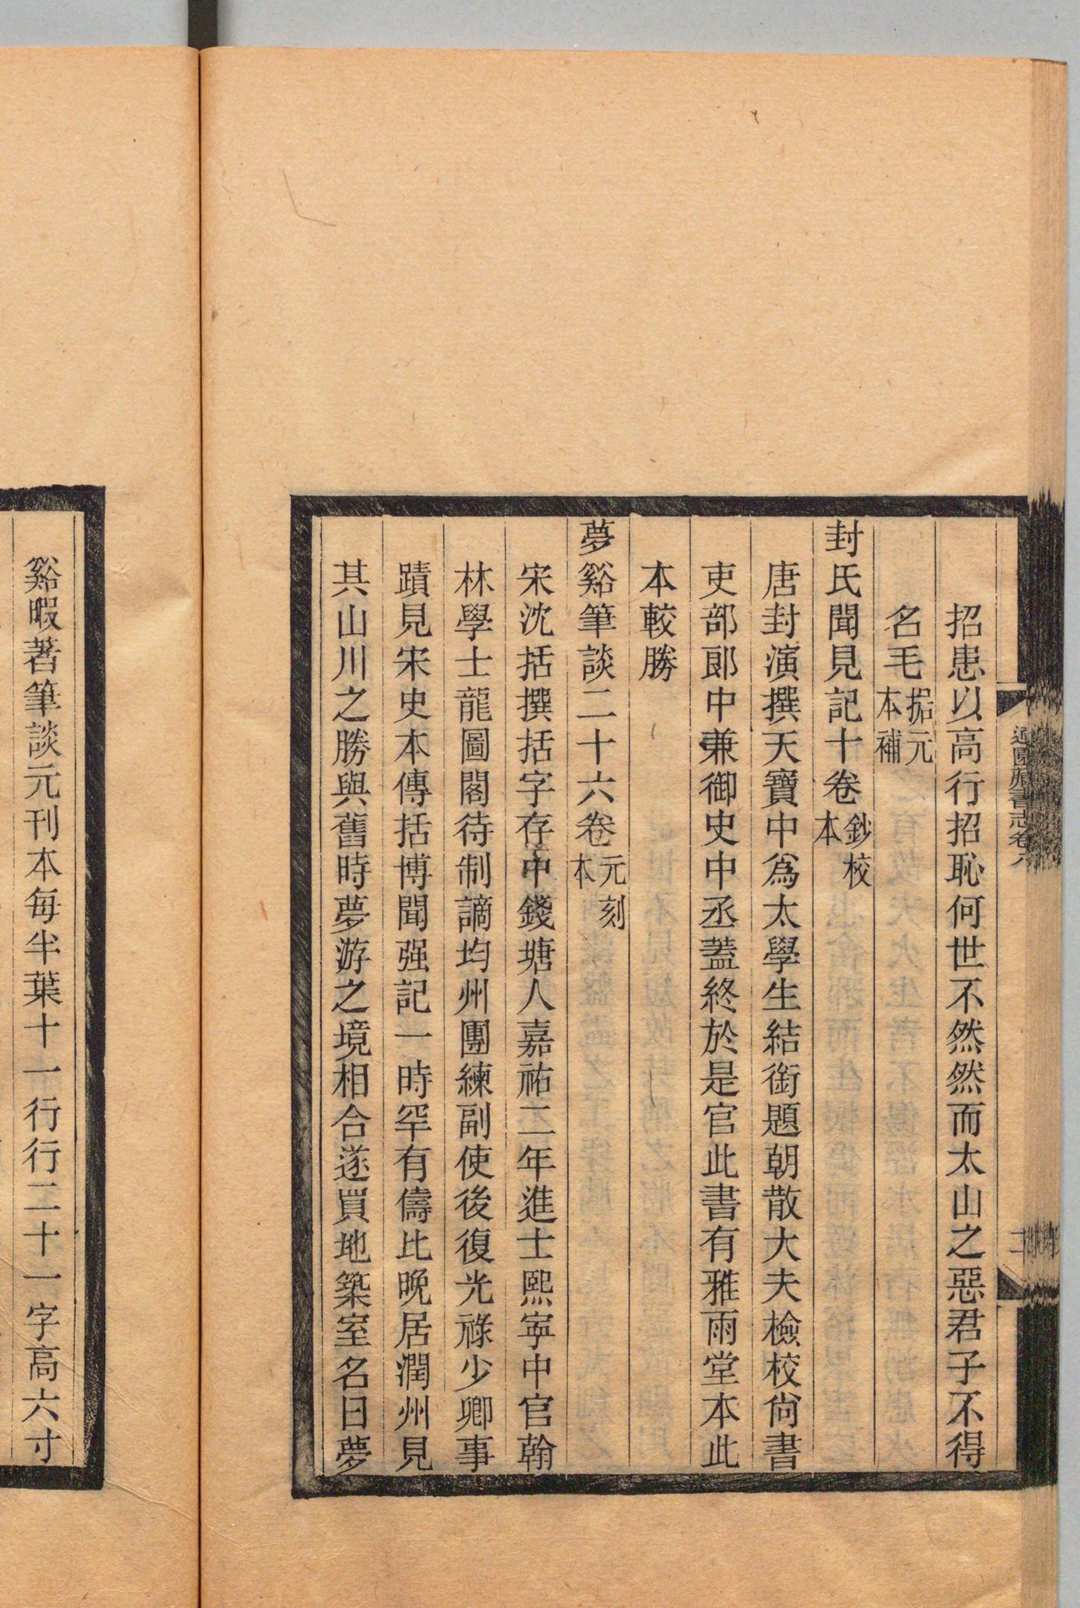 招患以高行招恥何世不然然而太山之惡君子不得
名毛据元本補
封氏聞見記十卷鈔校本
唐封演撰天寶中爲太學生結銜題朝散大夫檢校尚書
吏部郎中兼御史中丞蓋終於是官此書有雅雨堂本此
本較勝
夢谿筆談二十六卷元刻本
宋沈括撰括字存中錢塘人嘉祐二年進士熙寧中官翰
林學士龍圖閣待制謫均州團練副使後復光祿少卿事
蹟見宋史本傳括博聞强記一時罕有儔比晚居潤州見
其山川之勝與舊時夢游之境相合遂買地築室名曰夢
谿暇著筆談元刊本每半葉十一行行二十一字高六寸